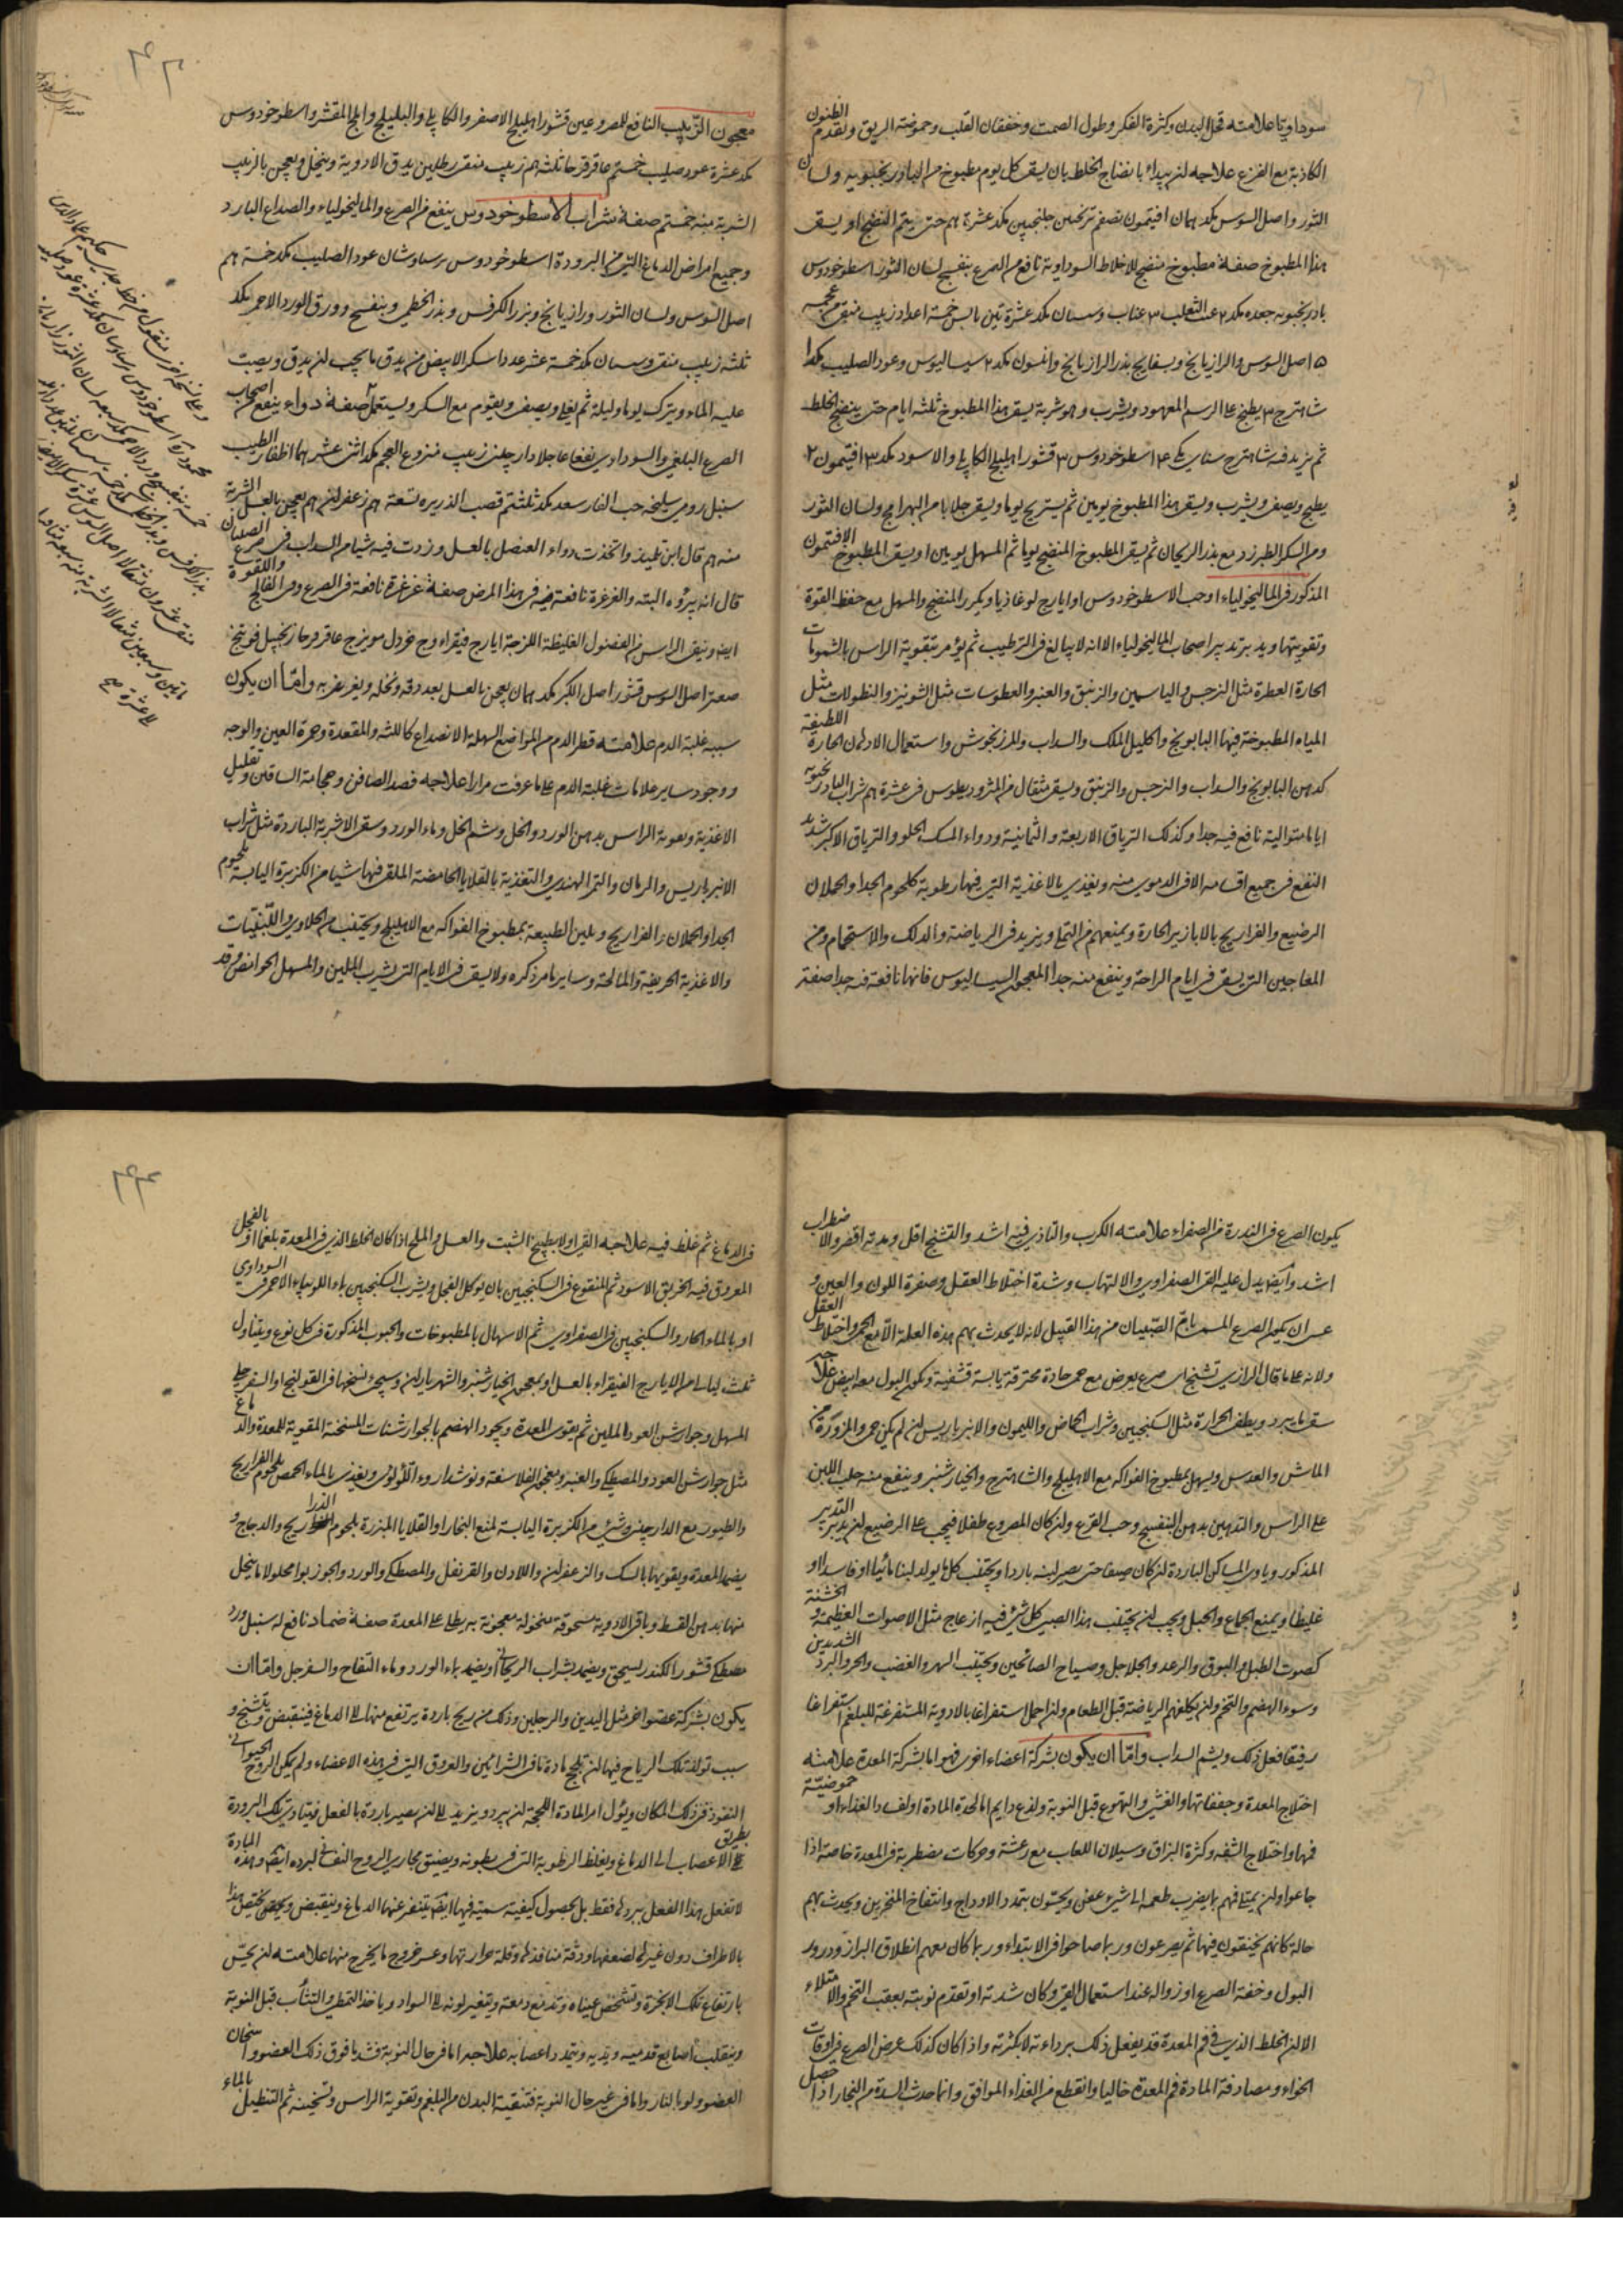 سوداويا علامته قحل البدن وكثرة الفكر وطول الصمت وخفقان القلب وحموضة الريق وتقدم الظنون
الكاذبة مع الفزع علاجه ان يبداء بانضاج الخلط بان يسقى كل يوم مطبوخ من البادرنجبويه ولسان
الثور واصل السوس مكد افتيمون نصفم ترنجبين جلنجبين مكد عشرة هم حتى يتم النضج او يسقى
هذا المطبوخ صفة مطبوخ منضج للاخلاط السوداوية نافع من الصرع بنفسج لسان الثور اسطوخودوس
بادرنجبويه جعده مكد ٢ عنب الثعلب ٣ عناب وسبستان مكد عشرة تين يابس خمسة اعداد زبيب منقى من عجمه
٥ اصل السوس والرازيانج وبسفايج بذر الرازيانج وانيسون مكد ٢ سيساليوس وعود الصليب مكد ا
شاهترج ٣ يطبخ على الرسم المعهود ويشرب وهو شربة يسقى هذا المطبوخ ثلثة ايام حتى ينضج الخلط
ثم يزيد فيه شاهترج سنا مكي ٤ اسطوخودوس ٣ قشور اهليلج الكابلي والاسود مكد ٣ افتيمون ٢
يطبخ ويصفى ويشرب ويسقى هذا المطبوخ يومين ثم يستريح يوما ويسقى جلابا من البهرامج ولسان الثور
ومن السكر الطبرزد مع بذر الريحان ثم يسقى المطبوخ المنضج يوما ثم المسهل يومين او يسقى المطبوخ الافتيمون
المذكور في الماليخولياء او حب الاسطوخودوس او ايارج لوغاذيا ويكرر المنضج والمسهل مع حفظ القوة
وتقويتها ويدبر تدبير اصحاب الماليخولياء الا انه لا يبالغ في الترطيب ثم يؤمر بتقوية الراس بالشمومات
الحارة العطرة مثل النرجس والياسمين والزنبق والعنبر والعطوسات مثل الشونيز والنطولات مثل
المياه المطبوخة فيها البابونج واكليل الملك والسداب والمرزنجوش واستعمال الادهان الحارة اللطيفة
كدهن البابونج والسداب والنرجس والزنبق ويسقى مثقال من المثروديطوس في عشرة هم شراب البادرنجبويه
اياما متوالية نافع فيه جدا وكذلك الترياق الاربعة والثمانية ودواء المسك الحلو والترياق الاكبر شديد
النفع في جميع اقسامه الا في الدموي منه ويغذي بالاغذية التي فيها رطوبة كلحوم الجدا والحملان
الرضيع والفراريج بالابازير الحارة ويمنعهم من التملي ويزيد في الرياضة والدلك والاستحمام ومن
المعاجين التي يسقى في ايام الراحة وينفع منه جدا المعجون السيساليوس فانها نافعة فيه جدا صفة
٤٢
معجون الزبيب النافع للمصروعين قشور اهليلج الاصفر والكابلي والبليلج واملج المقشر واسطوخودوس
مكد عشرة عود صليب خمستم عاقرقرحا ثلثة هم زبيب منقى رطلين يدق الادوية وينخل ويعجن بالزبيب
الشربة منه خمستم صفة شراب الاسطوخودوس ينفع من الصرع والماليخولياء والصداع البارد
وجميع امراض الدماغ التي من البرودة اسطوخودوس برسياوشان عود الصليب مكد خمسة هم
اصل السوس ولسان الثور ورازيانج وبزر الكرفس وبذر الخطمي وبنفسج وورق الورد الاحمر مكد
ثلثه زبيب منقى وسبستان مكد خمسة عشر عددا سكر الابيض من يدق ما يجب ان يدق ويصب
عليه الماء ويترك يوما وليلة ثم يغلي ويصفى ويقوم مع السكر ويستعمل صفة دواء ينفع من اصحاب
الصرع البلغمي والسوداوي نفعا عاجلا دارچيني زبيب منزوع العجم مكد اثنى عشر هما اظفار الطيب
سنبل رومي سليخه حب الغار سعد مكد ثلثتم قصب الذريره تسعة هم زعفران هم يعجن بالعسل الشربة
منه هم قال ابن تلميذ واتخذت دواء العنصل بالعسل وزدت فيه شيا من السداب في صرع الصبيان
قال انه يبرؤه البته والغرغرة نافعة فيه في هذا المرض صفة غرغرة نافعة في الصرع ومن الفالج واللقوة
ايضا وينقى الراس من الفضول الغليظة اللزجة ايارج فيقراء وج خردل مويزج عاقرقرحا زنجبيل فوتنج
صعتر اصل السوس قشور اصل الكبر مكد يعجن بالعسل بعد دقه ونخله ويغرغر به واما ان يكون
سببه غلبة الدم علامته قطر الدم من المواضع السهلة الانصداع كاللثة والمقعدة وحمرة العين والوجه
ووجود ساير علامات غلبة الدم على ما عرفت مرارا علاجه فصد الصافن وحجامة الساقين وتقليل
الاغذية وتقوية الراس بدهن الورد والخل وشم الخل وماء الورد وسقى الاشربة الباردة مثل شراب
الانبرباريس والرمان والتمر الهندي والتغذية بالقلايا الحامضة الملقى فيها شيا من الكزبرة اليابسة بلحوم
الجدا والحملان والفراريج وتليين الطبيعة بمطبوخ الفواكه مع الاهليلج ويجتنب من الحلاوي واللبنيات
والاغذية الحريفة والمالحة وساير ما مر ذكره ولا يسقى في الايام التي يشرب الملين والمسهل الحوامض وقد
يكون الصرع في الندرة من الصفراء علامته الكرب والتاذي فيه اشد والتشنج اقل ومدته اقصر والاضطراب
اشد وايضا يدل عليه القي الصفراوي والالتهاب وشدة اختلاط العقل وصفرة اللون والعين و
عسى ان يكون الصرع المسمى بام الصبيان من هذا القبيل لانه لا يحدث بهم هذه العلة الا مع الحمى واختلاط العقل
ولانه على ما قال الرازي تشنج اي صرع يعرض مع حمى حادة محترقة يابسة قشفية ويكون البول معه ابيض علاجه
سقى ما يبرد ويطفى الحرارة مثل السكنجبين وشراب الحماض والليمون والانبرباريس ان لم يكن حمى والمزورة من
الماش والعدس ويسهل بمطبوخ الفواكه مع الاهليلج والشاهترج والخيارشنبر وينفع منه حلب اللبن
على الراس والتدهين بدهن البنفسج وحب القرع وان كان المصروع طفلا فيجب على الرضيع ان يدبر التدبير
المذكور وياوى المساكن الباردة ان كان صيفا حتى يصير لبنه باردا ويجتنب كل ما يولد لبنا مائيا او فاسدا او
غليظا ويمنع الجماع والحبل ويجب ان يجتنب هذا الصبي كل شئ فيه ازعاج مثل الاصوات العظيمة والخشنة
كصوت الطبل والبوق والرعد والجلاجل وصياح الصائحين ويجتنب السهر والغضب والحر والبرد الشديدين
وسوء الهضم والتخم وان يكلفهم الرياضة قبل الطعام وان احتمل استفراغا بالادوية المستفرغة للبلغم استفراغا
رفيقا فعل ذلك ويشم السداب واما ان يكون بشركة اعضاء اخرى فهو اما بشركة المعدة علامته
اختلاج المعدة وخفقانها والغشي والتهوع قبل النوبة ولذع دايم اما لحدة المادة او لفساد الغذاء او حموضته
فيها واختلاج الشفه وكثرة البزاق وسيلان اللعاب مع رعشة وحركات مضطربة في المعدة خاصة اذا
جاعوا وان يمتلي فمهم بما يضرب طعمه الى شئ عفن ويحسون بتمدد الاوداج وانتفاخ المنخرين ويحدث بهم
حالة كانهم يختنقون فيها ثم يصرعون وربما صاحوا في الابتداء وربما كان معهم انطلاق البراز ودرور
البول وخفة الصرع او زواله عند استعمال القي وكان شدته او تقدم نوبته بعقب التخم والامتلاء
الا ان الخلط الذي في فم المعدة قد يفعل ذلك برداءته لا بكثرته واذا كان كذلك عرض الصرع في اوقات
الخواء ومصادفة المادة فم المعدة خاليا وانقطع من الغذاء الموافق وانما حدث السدة من البخار اذا حصل
٤٣
في الدماغ ثم غلظ فيه علاجه القي اولا بطبيخ الشبت والعسل والملح اذا كان الخلط الذي في المعدة بلغما او بالفجل
المعروق فيه الخربق الاسود ثم المنقوع في السكنجبين بان يوكل الفجل ويشرب السكنجبين بماء اللوبياء الاحمر في السوداوي
او بالماء الحار والسكنجبين في الصفراوي ثم الاسهال بالمطبوخات والحبوب المذكورة في كل نوع ويتناول
ثلث ليالي من الايارج الفيقراء بالعسل او بمعجون الخيارشنبر والشهرياران وسيجئ نسختها في القولنج او السفرجلي
المسهل وجوارشن العود الملين ثم يقوى المعدة ويجود الهضم بالجوارشنات المسخنة المقوية للمعدة والدماغ
مثل جوارش العود والمصطكي والعنبر ومعجون الفلاسفة ونوشدارو اللؤلؤى ويغذى بالماء الحمص بلحوم الفراريج
والطيور مع الدارچيني وشئ من الكزبرة اليابسة لمنع البخار او القلايا المبزرة بلحوم الدراريج والدجاج و
يضمد المعدة ويقويها بالسك والزعفران واللادن والقرنفل والمصطكي والورد والجوزبوا محلولا ما ينحل
منها بدهن القسط وباقي الادوية مسحوقة منخولة معجونة به يطلى على المعدة صفة ضماد نافع له سنبل ورد
مصطكي قشور الكندر يسحق ويضمد بشراب الريحاني او يضمد بماء الورد وماء التفاح والسفرجل واما ان
يكون بشركة عضو اخر مثل اليدين والرجلين وذلك من ريح باردة يرتفع منها الى الدماغ فينقبض ويتشنج و
سبب تولد تلك الرياح فيها ان تلحج مادة ما في الشرائين والعروق التي في هذه الاعضاء ولم يمكن الروح الحيواني
النفوذ في ذلك المكان ويؤل امر المادة اللحجة ان يبرد ويزيد الى ان يصير باردة بالفعل فيتادى تلك البرودة
بطريق الاعصاب الى الدماغ ويغلظ الرطوبة التي في بطونه ويضيق مجارى الروح النفساني لبرده ايضا وهذه المادة
لا تفعل هذا الفعل ببردها فقط بل بحصول كيفية سمية فيها ايضا يتنفر عنها الدماغ وينقبض ويختص هذا
بالاطراف دون غيرها لضعفها ودقة منافذها وقلة حرارتها وعسر خروج ما يخرج منها علامته ان يحس
بارتفاع تلك الابخرة وتشخص عيناه وتدمع دمعة ويتغير لونه الى السواد وياخذ التمطي والتثأب قبل النوبة
وينقلب اصابع قدميه ويديه ويتمدد اعصابه علاجه اما في حال النوبة فشد ما فوق ذلك العضو واسخان
العضو ولو بالنار واما في غير حال النوبة فتنقية البدن من البلغم وتقوية الراس وتسخينه ثم التنطيل بالماء